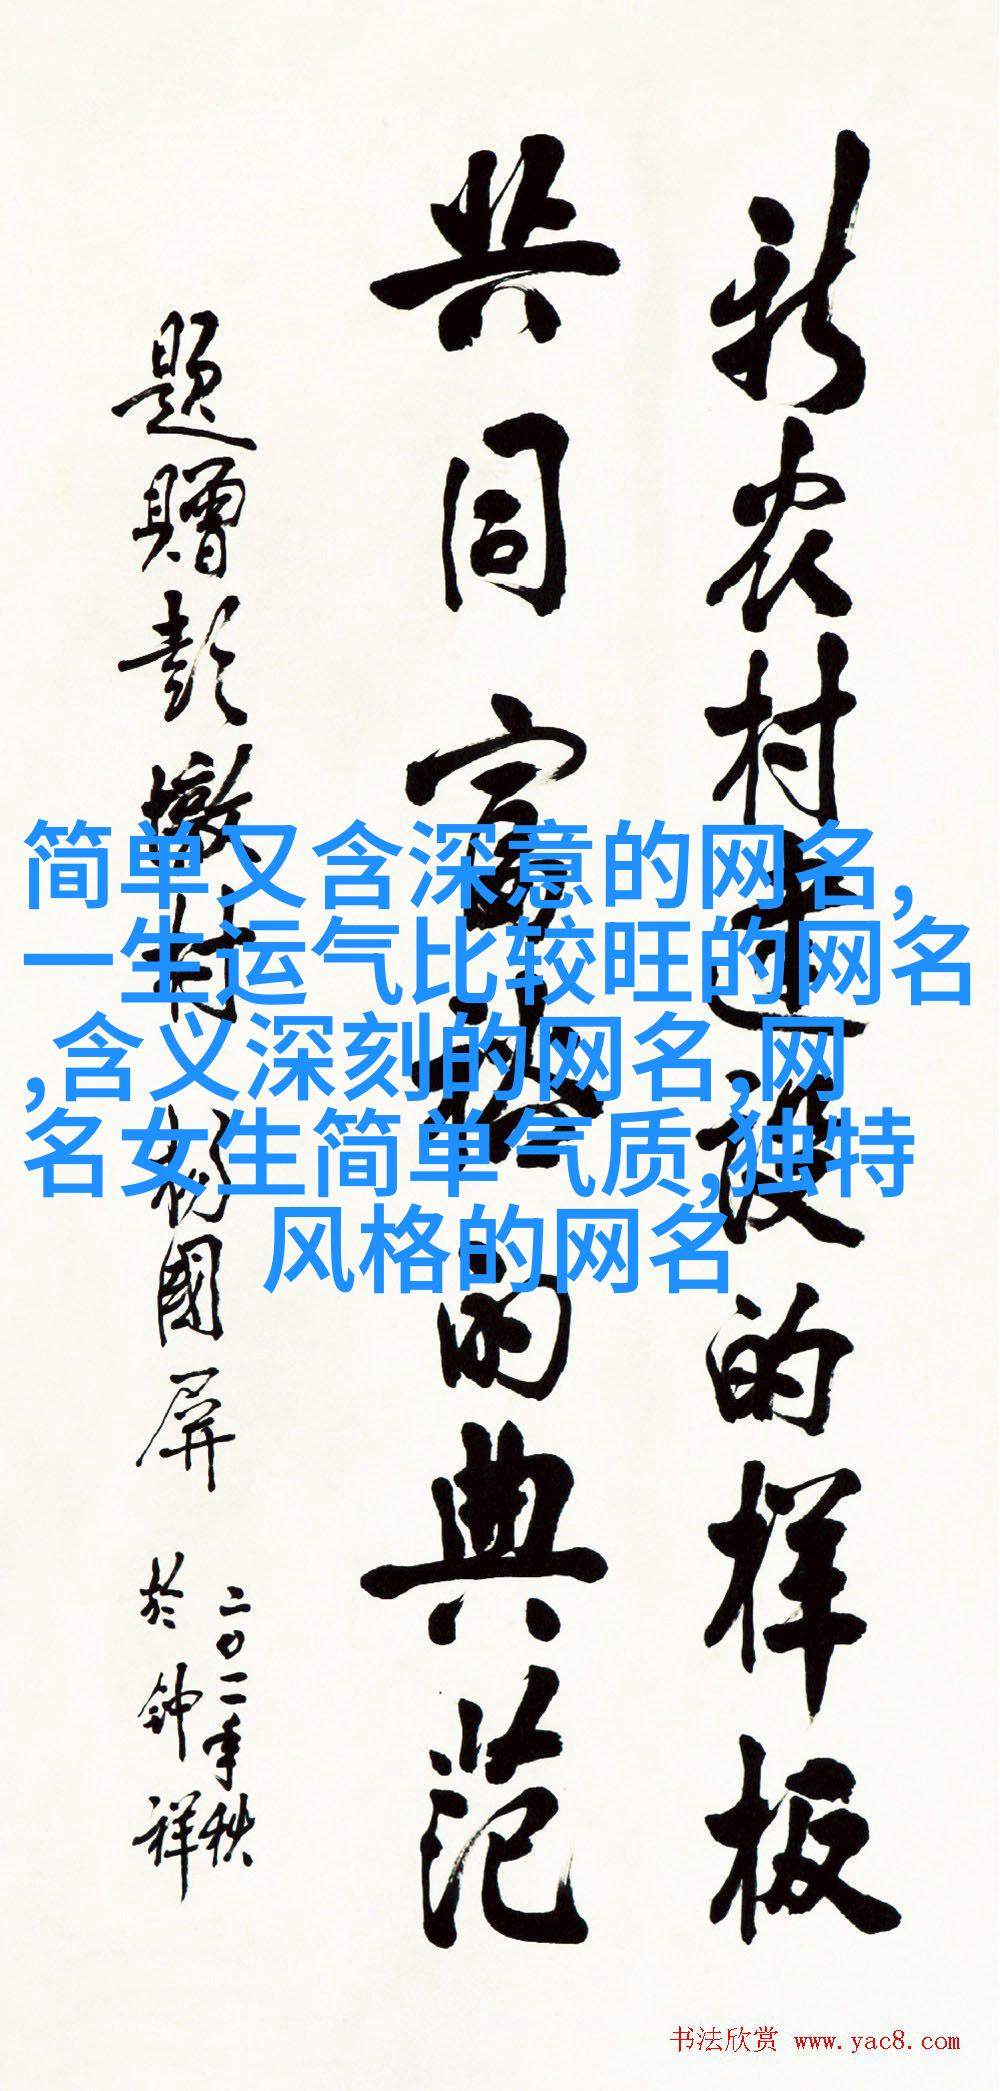 新农村建设的样板
共同富裕的典范
题赠彭墩村 杨國屏
二〇一一年秋
於钟祥
简单又含深意的网名,
一生运气比较旺的网名
,含义深刻的网名,网
名女生简单气质,独特
风格的网名
书法欣赏 www.yac8.com